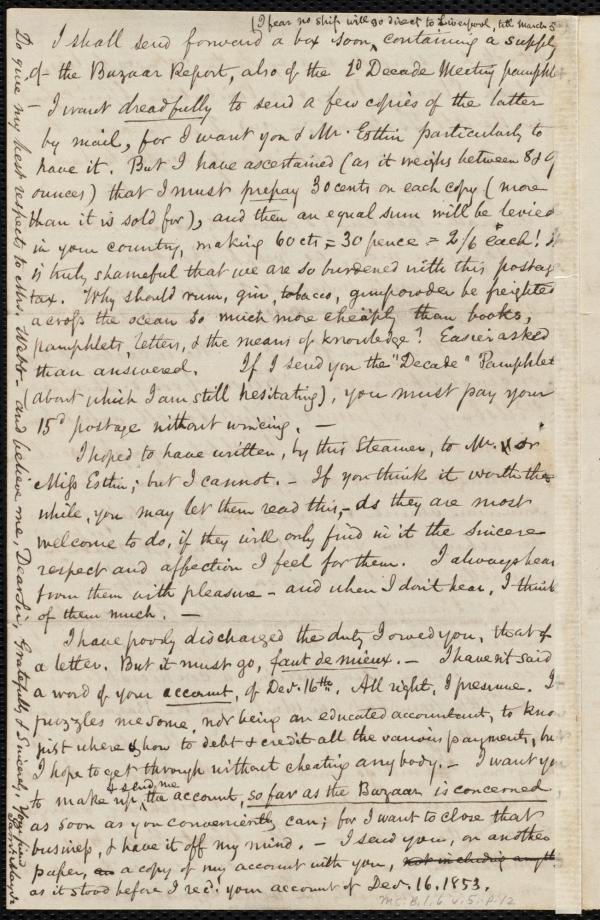 (I fear no ship will go direct to Liverpool, till March 5
I shall send forward a box soon, containing a supply
of the Bazaar Report, also of the 2d Decade Meeting pamphl
– I want dreadfully to send a few copies of the latter
by mail, for I want you & Mr. Estlin particularly to
have it. But I have ascertained (as it weighs between 8 & 9
ounces) that I must prepay 30 cents on each copy (more
than it is sold for), and then an equal sum will be levied
in your country, making 60 cts = 30 pence = 2/6 each! It
is truly shameful that we are so burdened with this postage
tax. Why should rum, gin, tobacco, gunpowder be freighted
across the ocean so much more cheaply than books,
pamphlets, letters, & the means of knowledge? Easier asked
than answered. If I send you the "Decade" Pamphlet
about which I am still hesitating), you must pay your
15d postage without wincing. –
I hoped to have written, by this Steamer, to Mr. or
Miss Estlin; but I cannot. – If you think it worth the
while, you may let them read this, – as they are most
welcome to do, if they will only find in it the sincere
respect and affection I feel for them. I always hear
from them with pleasure – and when I don't hear, I think
of them much. –
I have poorly discharged the duty I owed you, that of
a letter. But it must go, faut de mieux. – I haven't said
a word of your account, of Dec. 16th. All right, I presume. I
puzzles me some, not being an educated accountant, to kno
just where & how to debt & credit all the various payments, bu
I hope to get through without cheating any body. – I want yo
to make up, & send me the account, so far as the Bazaar is concerned
as soon as you conveniently can; for I want to close that
business, & have it off my mind. – I send you, on another
paper, a copy of my account with you, not including
as it stood before I recd. your account of Dec. 16, 1853.
Do give my best respects to Mrs. Webb – and believe me, Dear Sir, Gratefully & Sincerely, Your friend
Saml. May Jr
Ms. B.1.6 v.5. p.12